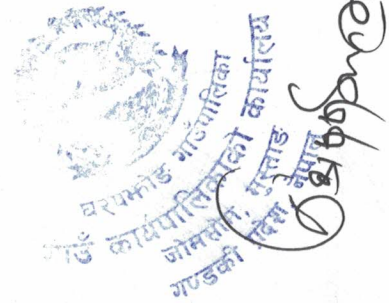 घरपझोङ गाउँपालिका
गाउँ कार्यपालिकाको कार्यालय
जोमसोम, मुस्ताङ
गण्डकी प्रदेश नेपाल